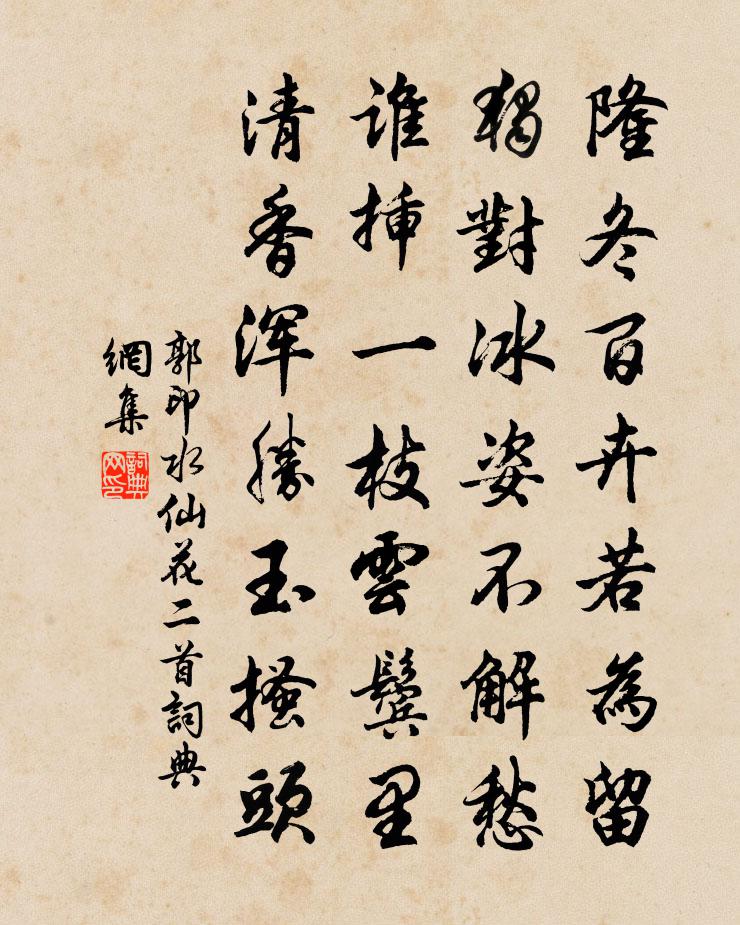 隆冬百卉若為留
獨對冰姿不解愁
誰挿一枝雲鬢里
清香渾勝玉搔頭
郭印水仙花二首詞典
網集
詞典
网印